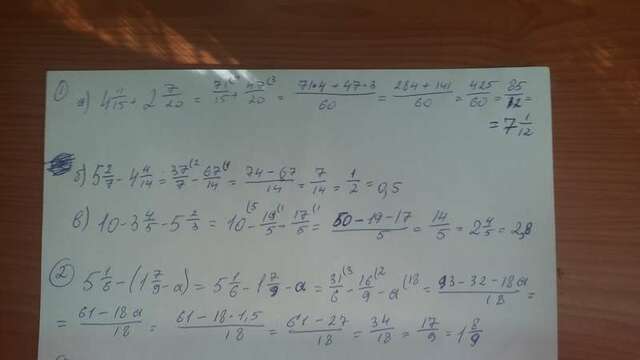 1) а) 4 11/15 + 2 7/20 = 71/15 (4 + 47/20 (3 = 71·4 + 47·3/60 = 284 + 141/60 = 425/60 = 85/12 =
= 7 1/12
б) 5 2/7 - 4 4/14 = 37/7 (2 - 67/14 (1 = 74 - 67/14 = 7/14 = 1/2 = 0,5
в) 10 - 3 4/5 - 5 2/3 = 10 (5 - 19/5 (1 - 17/5 (1 = 50 - 19 - 17/5 = 14/5 = 2 4/5 = 2,8
2) 5 1/6 - (1 7/9 - a) = 5 1/6 - 1 7/9 - a = 31/6 (3 - 16/9 (2 - a (18 = 93 - 32 - 18a/18 =
= 61 - 18a/18 = 61 - 18·1,5/18 = 61 - 27/18 = 34/18 = 17/9 = 1 8/9